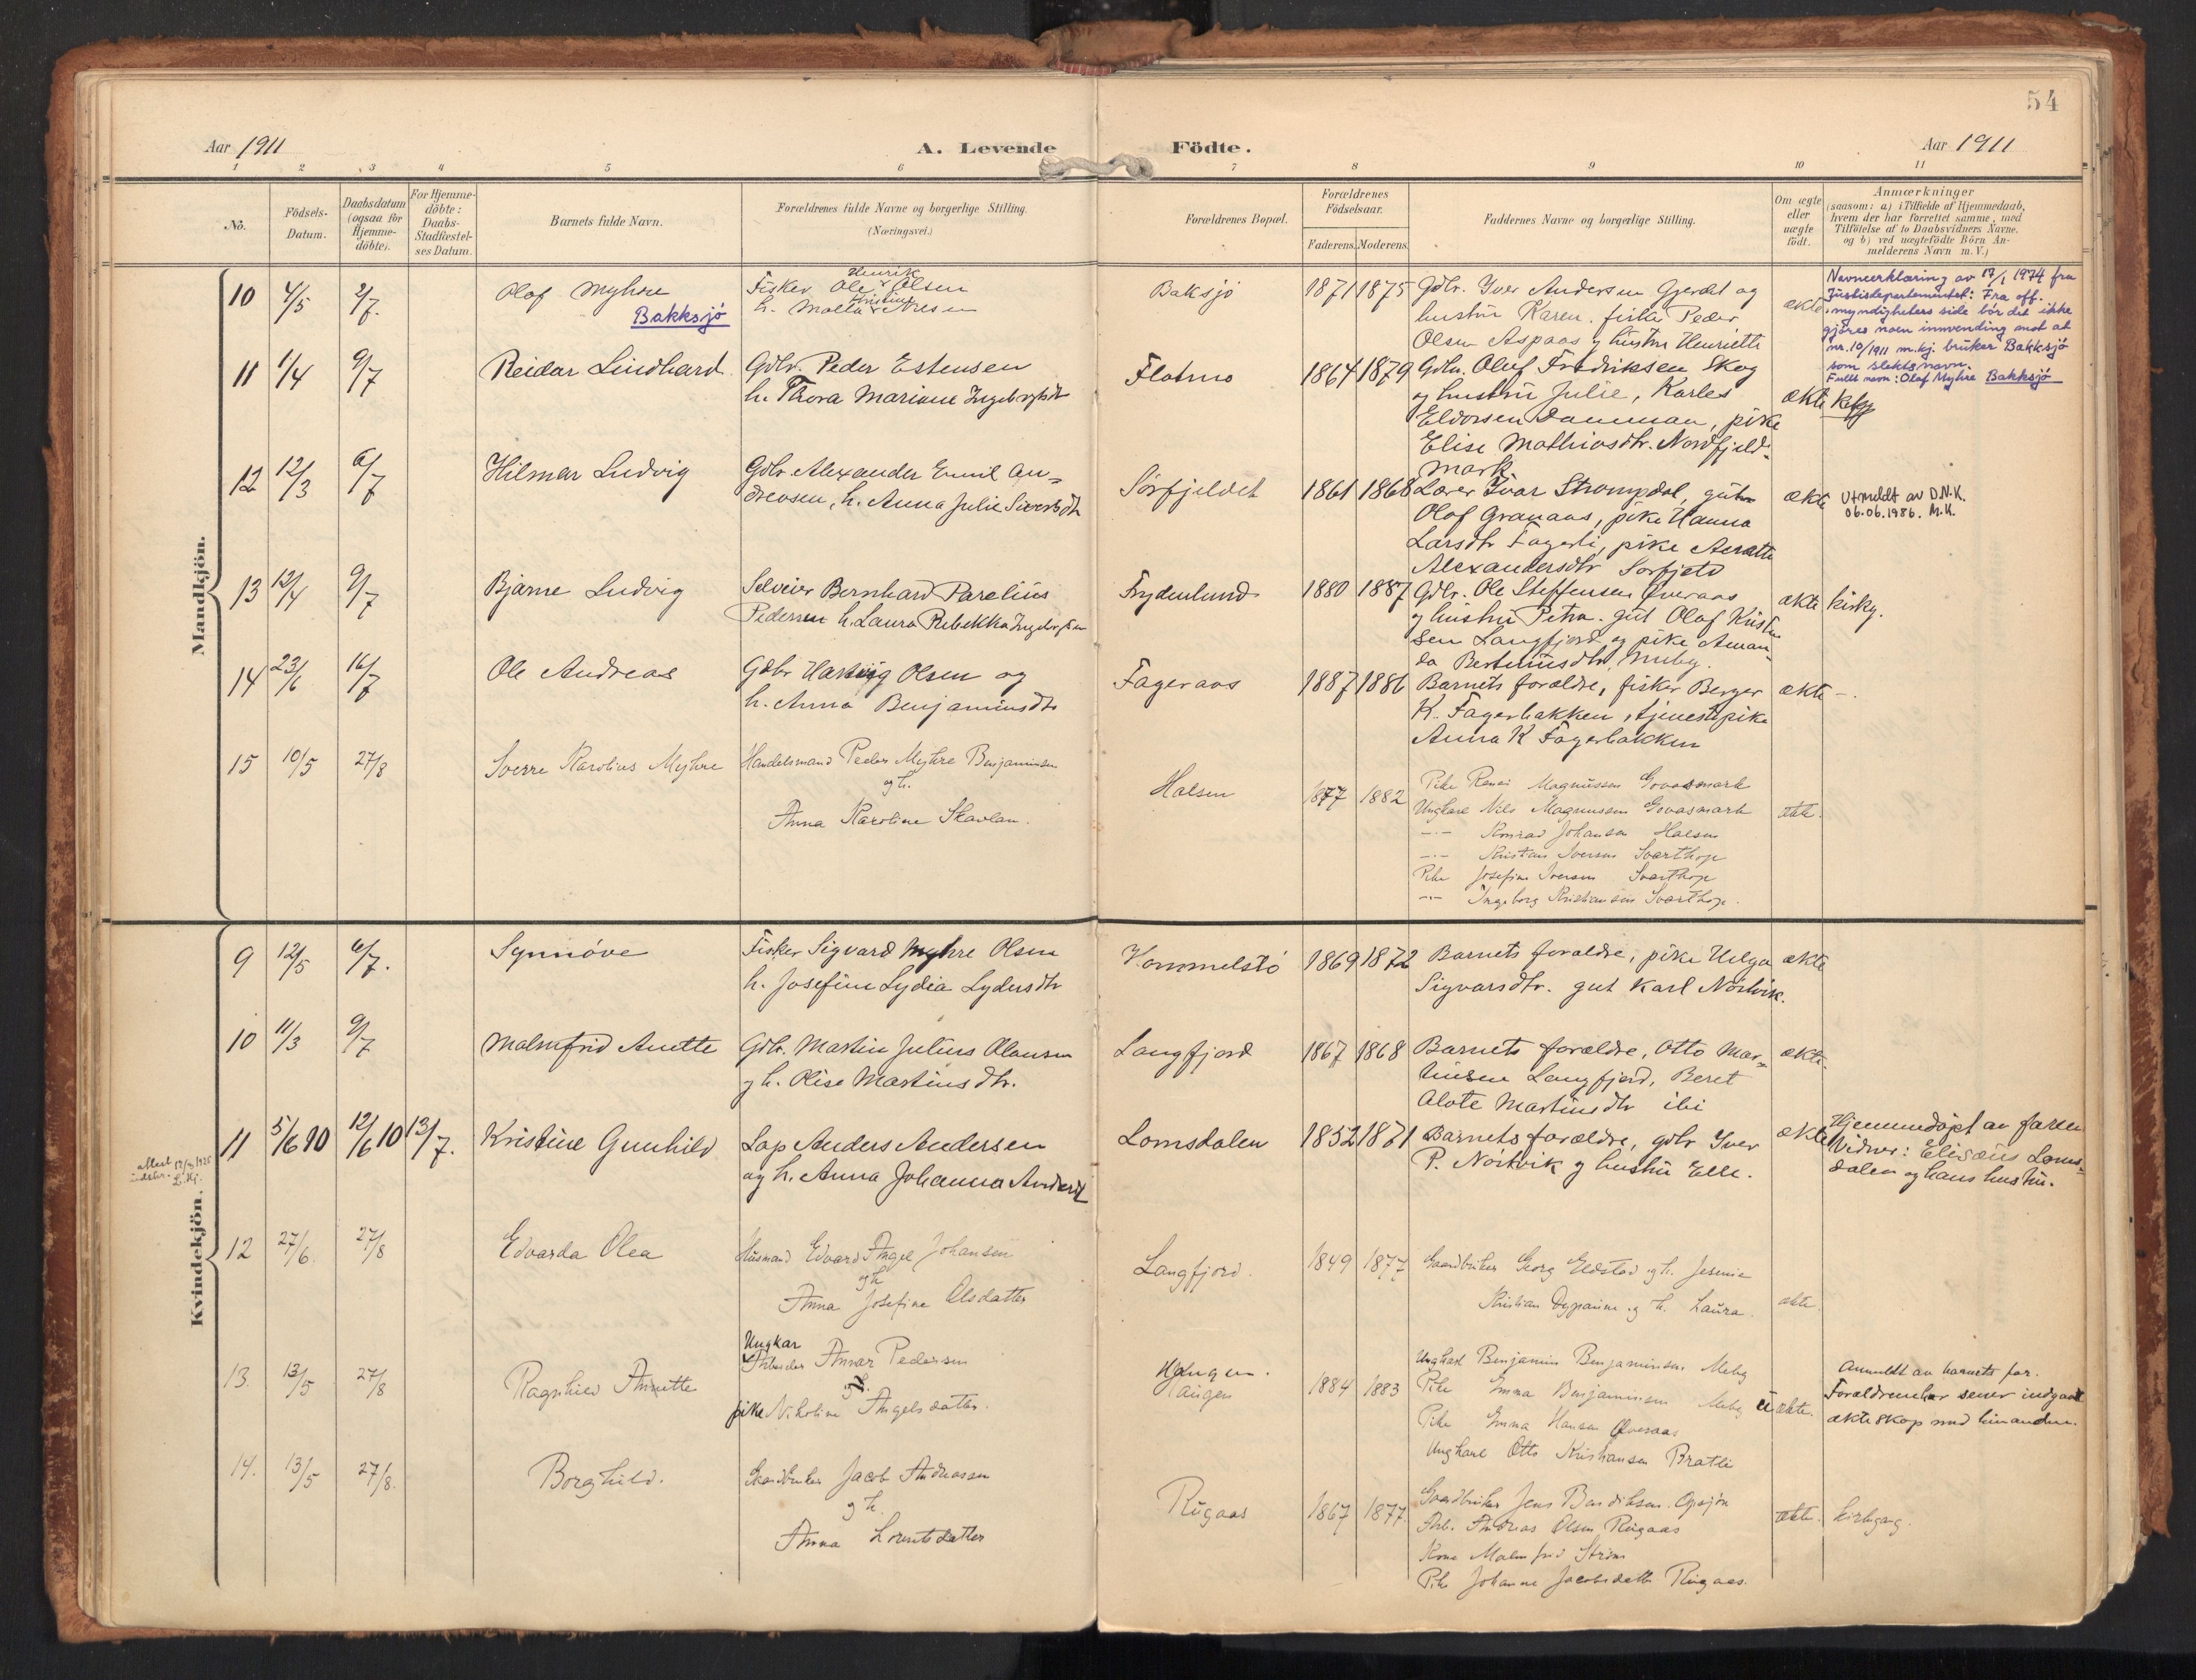 54
Aar 1911 A. Levende Födte. Aar 1911
1 2 3 4 5 6 7 8 9 10 11
No.
Födsels-
Datum.
Daabsdatum
(ogsaa för
Hjemme-
döbte).
For Hjemme-
döbte:
Daabs-
Stadfæstel-
ses Datum.
Barnets fulde Navn.
Forældrenes fulde Navne og borgerlige Stilling.
(Næringsvei.)
Forældrenes Bopæl.
Forældrenes
Födselsaar.
Faderens. Moderens.
Faddernes Navne og borgerlige Stilling.
Om ægte
eller
uægte
födt.
Anmærkninger
(saasom: a) i Tilfælde af Hjemmedaab,
hvem der har forrettet samme, med
Tilföielse af to Daabsvidners Navne.
og b) ved uægtefödte Börn An-
melderens Navn m. V.)
Mandkjön.
10 4/5 2/7. Olaf Myhre
Bakksjö
Henrik
Fisker Ole Olsen
Kristine
h. Malla
Baksjö 1871 1875
Gdbr. Iver Andersen Gjerdet og
hustru Karen. fisker Peder
Olsen Aspaas og hustru Henriette
ekte
Navneerklæring av 17/1 1974 fra
Justisdepartementet: Fra off.
myndigheters side bör det ikke
gjöres noen innvending mot at
nr. 10/1911 m.kj. bruker Bakksjö
som slektsnavn.
Fullt navn: Olaf Myhre Bakksjö
11 1/4 9/7 Reidar Lindhard.
Gdbr. Peder Estensen
h. Thora Mariane
Flatmo 1864 1879
Gdbr. Oluf Fredriksen Skog
og hustru Julie, Karles
Eldorsen Damman, pike
Elise Mathiasdtr. Nordfjeld-
mark.
ekte
12 12/3 6/7 Hilmar Ludvig
Gdbr. Alexander Emil An-
dreasen, h. Anna Julie Sivertsdtr
Sörfjeldet 1861 1868
Lærer Ivar Strompdal, gut
Olaf Granaas, pike Hanna
Larsdtr Fagerli, pike
Alexandersdtr Sörfjeld
ekte
Utmeldt av D.N.K.
06.06.1986. M.K.
13 12/4 9/7 Bjarne Ludvig
Selveier Bernhard Parelius
Pedersen h. Laura Rebekka
Frydenlund 1880 1887
Gdbr. Ole Steffensen Överaas
og hustru Petra. gut Olaf Kristen
sen Langfjord og pike Aman-
da
ekte kirkg.
14 23/6 16/7 Ole Andreas
Gdbr Hartvig Olsen og
h. Anna Benjaminsdtr
Fageraas 1887 1886
Barnets forældre, fisker Berger
K. Fagerbakken, tjenestepike
Anna K Fagerbakken
ekte -.
15 10/5 27/8 Sverre Karolius Myhre
Handelsmand Peder Myhre Benjaminsen
og h.
Anna Karoline Skavlan.
Halsen 1877 1882
Pike Magnussen
Ungkarl Nils Magnussen
-"- Konrad Johansen Halsen
-"- Kristian Iversen Svarthop
Pike Josefine Iversen Svarthop
-"- Ingeborg Kristiansen Svarthop.
ekte.
Kvindekjön.
9 12/5 6/7. Synnöve
Fisker Sigvard Myhre Olsen
h. Josefine Lydia Lydersdtr
Hommelstö 1869 1872
Barnets forældre, pike Helga
Sigvarsdtr. gut Karl Nöstvik.
ekte
10 11/3 9/7 Malmfrid Anette
Gdbr. Martin Julius Olausen
og h. Olise Martinusdtr.
Langfjord 1867 1868
Barnets forældre, Otto Mar-
tinsen Langfjord, Beret
Alote Martinusdtr ibi
ekte.
11 5/6 10 12/6 10 13/7. Kristine Gunhild
Lap Anders Andersen
og h. Anna Johanna
Lomsdalen 1852 1871
Barnets forældre, gdbr Iver
P. Nöstvik og hustru Ellen.
ekte
Hjemmedöpt av faren
Vidner: Elisæus Loms-
dalen og hans hustru.
12 27/6 27/8 Edvarda Olea
Husmand Edvard Angel Johansen
og h
Anna Josefine Olsdatter
Langfjord. 1849 1877
Gaardbruker Georg Eldstad og h. Jesenie
Kristian og h. Laura.
ekte.
13. 13/5 27/8 Ragnhild Annette
Ungkar
Arbeider Annar Pedersen
pike Nikoline Angelsdatter.
1884 1883
Ungkarl Benjamin Benjaminsen
Pike Emma Benjaminsen
Pike Emma Hansen Överaas
Ungkarl Otto Kristiansen Bratli
uekte.
Anmeldt av barnets far.
Forældrene har senere indgaat
ekteskap med hinanden.
14. 13/5 27/8. Borghild.
Gaardbruker Jacob Andreassen
og h.
Anna Lorentsdatter
Rugaas 1867 1877
Gaardbruker Jens Bendiksen
Arb. Andreas Olsen Rugaas
Kone Malmfrid Ström
Pike Johanne Jacobsdatter Rugaas.
ekte. kirkegang.